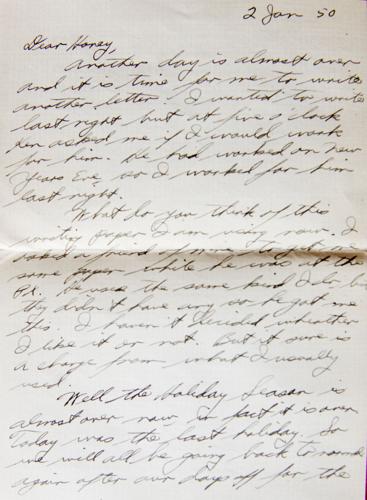 2 Jan 50
Dear Honey,
Another day is almost over
and it is time for me to write
another letter. I wanted to write
last night but at five o'clock
Ken asked me if I would work
for him. He had worked on New
Years Eve so I worked for him
last night.
What do you think of this
writing paper I am using now. I
asked a friend of mine to get me
some paper while he was at the
PX. He uses the same kind I do but
they didn't have any so he got me
this. I haven't decided wheather
I like it or not. But it sure is
a change from what I usually
used.
Well the Holiday Season is
almost over now, in fact it is over
Today was the last holiday. So
we will all be going back to normal
again after our days off for the